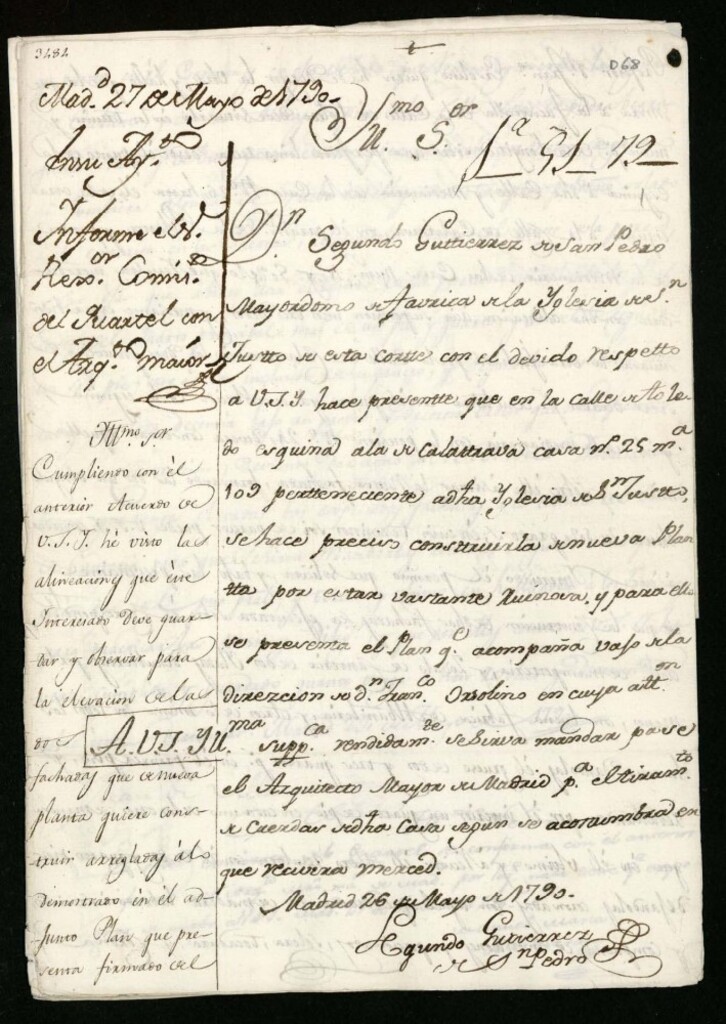 3484
068
Mad.d 27 de Mayo de 1790
Yll.mo S.or
1.a 51 79
En su Ay.to
Ynforme el S.
Rex.or Comis.o
del Quartel con
el Arq.to maior
D.n Segundo Guttierrez de San Pedro
Mayordomo de favrica de la Yglesia de S.n
Justto de esta cortte con el devido respetto
a V.S.Y. hace presentte que en la calle de Tole
do esquina a la de Calattrava casa n.o 25 m.a
109 pertteneciente a dha Yglesia de S.n Justto,
se hace preciso consttruirla de nueva Plan
tta por estar vastante Ruinosa, y para ello
se presenta el Plan q.e acompaña vajo de la
direzcion de d.n Fran.co Orsolino en cuya att.on
A. V.S.Y. supp.ca rendidam.te se sirva mandar pase
el Arquitecto Mayor de Madrid p.a el tiram.to
de Cuerdas de dha Casa segun se acostumbra en
que recivira merced.
Madrid 26 de Mayo de 1790
Segundo Gutierrez
de S.n Pedro
Yllmo. Sor.
Cumpliendo con él
anterior Acuerdo de
V.S.Y. hé visto las
alineaciones que éste
Interesado deve guar-
dar y observar para
la elevacion de las
dos
fachadas que de nueva
planta quiere cons-
truir arregladas á lo
demostrado en él ad-
junto Plan que pre-
senta firmado del